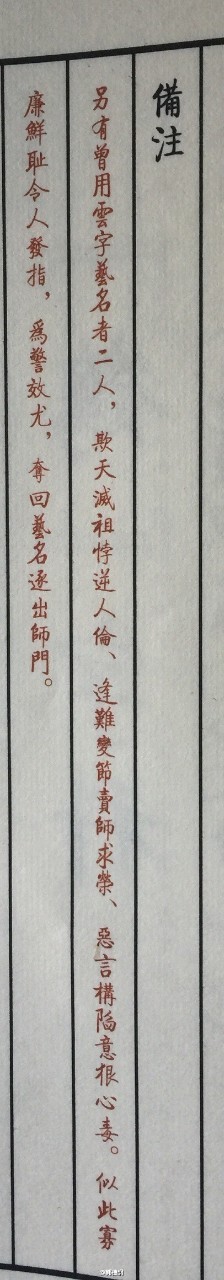 備注
另有曾用雲字藝名者二人，欺天滅祖悖逆人倫、逢難變節賣師求榮、惡言構陷意狠心毒。似此寡
廉鮮耻令人發指，爲警效尤，奪回藝名逐出師門。